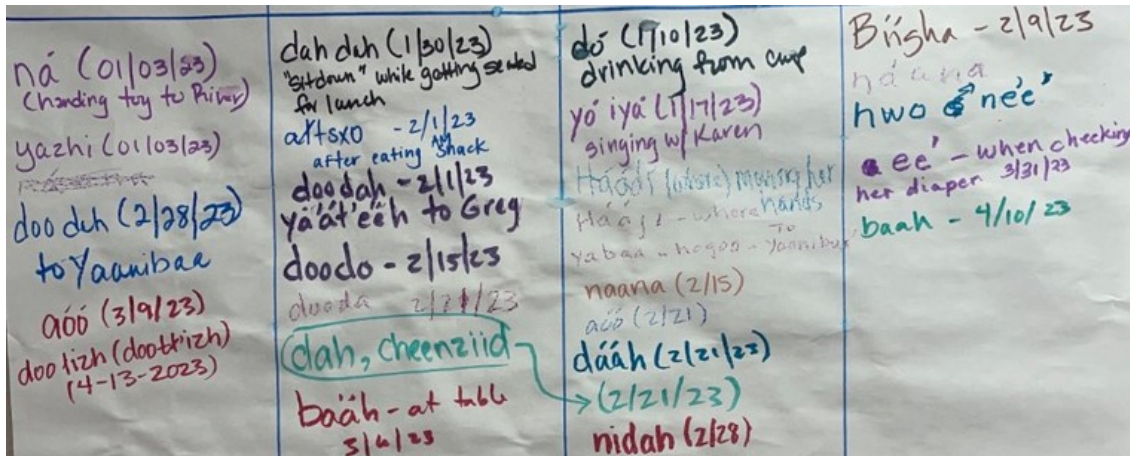 ná (01/03/23)
(handing toy to River)
yazhi (01/03/23)
doo duh (2/28/23)
to Yaanibaa
aóó (3/9/23)
doo lizh (dootł'izh)
(4-13-2023)
dah dah (1/30/23)
"sitdown" while getting seated
for lunch
ałtsxo - 2/1/23
after eating AM Snack
doodah - 2/1/23
yá'át'ééh to Greg
doodo - 2/15/23
dooda 2/21/23
dah, cheenziid
baäh - at table
dó (1/10/23)
drinking from cup
yó iya (1/17/23)
singing w/ Karen
Háádí (where) moving her
hands
Háájí - where
yabaa - hogoo - To Yaanibaa
naana (2/15)
aóó (2/21)
dááh (2/21/23)
(2/21/23)
nidah (2/28)
Bíísha - 2/9/23
náána
hwo né'e'
ee' - when checking
her diaper 3/31/23
baah - 4/10/23